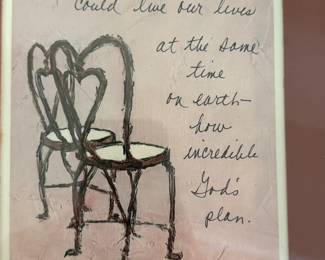 could live our lives
at the same
time
on earth—
how
incredible
God's
plan.